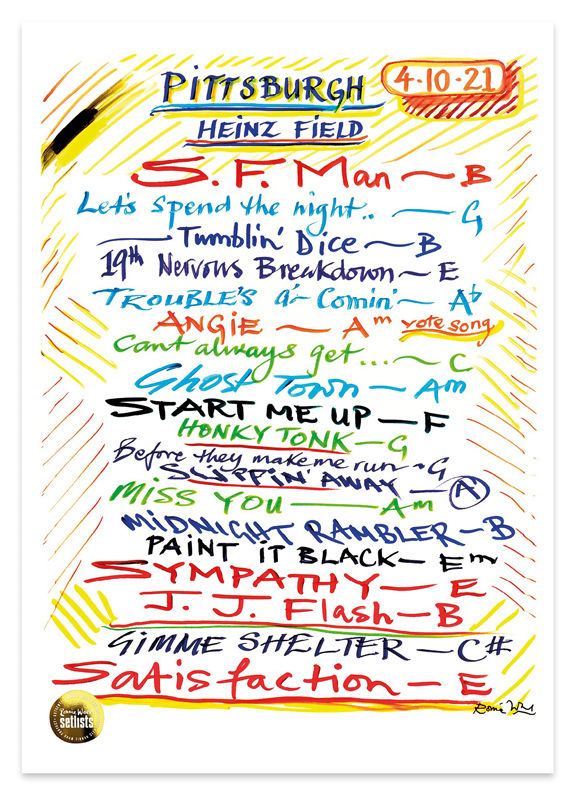 PITTSBURGH
4·10·21
HEINZ FIELD
S.F. Man — B
Let's spend the night.. — G
— Tumblin' Dice — B
19th Nervous Breakdown — E
TROUBLE'S a'- Comin' — Ab
ANGIE — Am vote song
Cant always get... — C
Ghost Town — Am
START ME UP — F
HONKY TONK — G
Before they make me run • G
SLIPPIN' AWAY — A
MISS YOU — Am
MIDNIGHT RAMBLER — B
PAINT IT BLACK — Em
SYMPATHY — E
J. J. Flash — B
GIMME SHELTER — C#
Satisfaction — E
Ronnie Wood
setlists